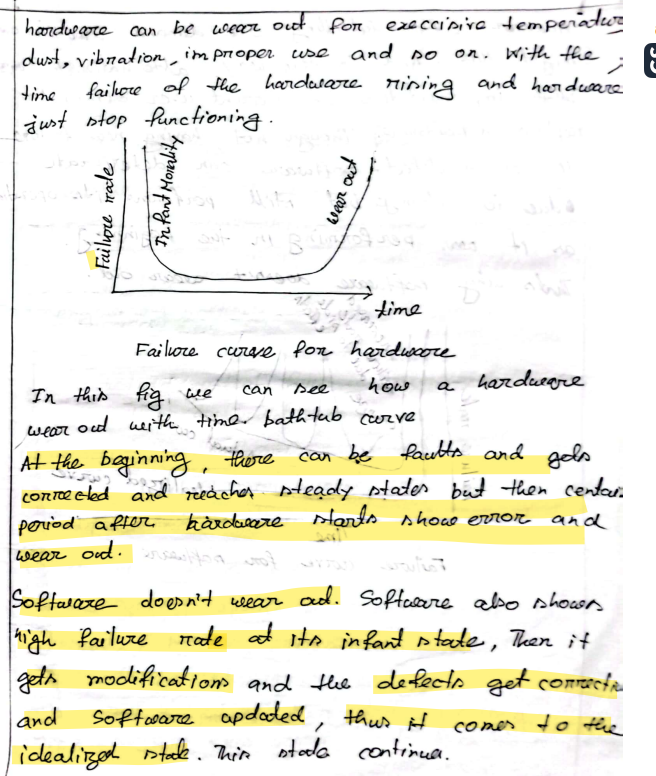 hardware can be wear out for execcisive temperature
dust, vibration, improper use and so on. With the
time failure of the hardware rising and hardware
just stop functioning.
Failure rate
Infant Morality
wear out
time
Failure curve for hardware
In this fig, we can see how a hardware
wear out with time. bathtub curve
At the beginning, there can be faults and gets
corrected and reaches steady states but then certain
period after hardware starts show error and
wear out.
Software doesn't wear out. Software also shows
high failure rate at its infant state, Then it
gets modifications and the defects get correcte
and software updated, thus it comes to the
idealized state. This state continue.